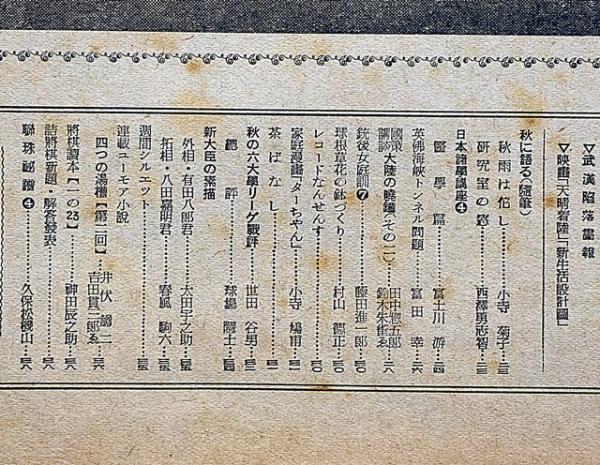 ▽武漢陷落畫報
▽映畫「天晴着陸」「新生活設計圖」
秋に語る(隨筆)
秋雨は佗し………小寺菊子…三
研究室の窓………西澤勇志智…三
日本諸學講座❹
醫學篇………富士川游…四
英佛海峽トンネル問題………富田幸…六
國策講談 大陸の曉鐘(その一)………田中惣五郎 鈴木朱雀ゑ…八
銃後女庭訓❼………藤田進一郎…三〇
球根草花の鉢づくり………村山德正…三〇
レコードなんせんす………三〇
家庭漫畫「ターちやん」………小寺鳩甫…三一
茶ばなし………三一
秋の六大學リーグ戰評………世田谷男…三
戲評………球場隱士…四
新大臣の素描
外相・有田八郎君………太田宇之助…三五
拓相・八田嘉明君………春風駒六…三五
週間シルエット………三五
連載ユーモア小說
四つの湯槽【第二回】………井伏鱒二 吉田貫三郎ゑ…三六
將棋讀本【一の23】………神田辰之助…三八
詰將棋新題・解答發表………三八
聯珠祕譜❹………久保松機山…三八